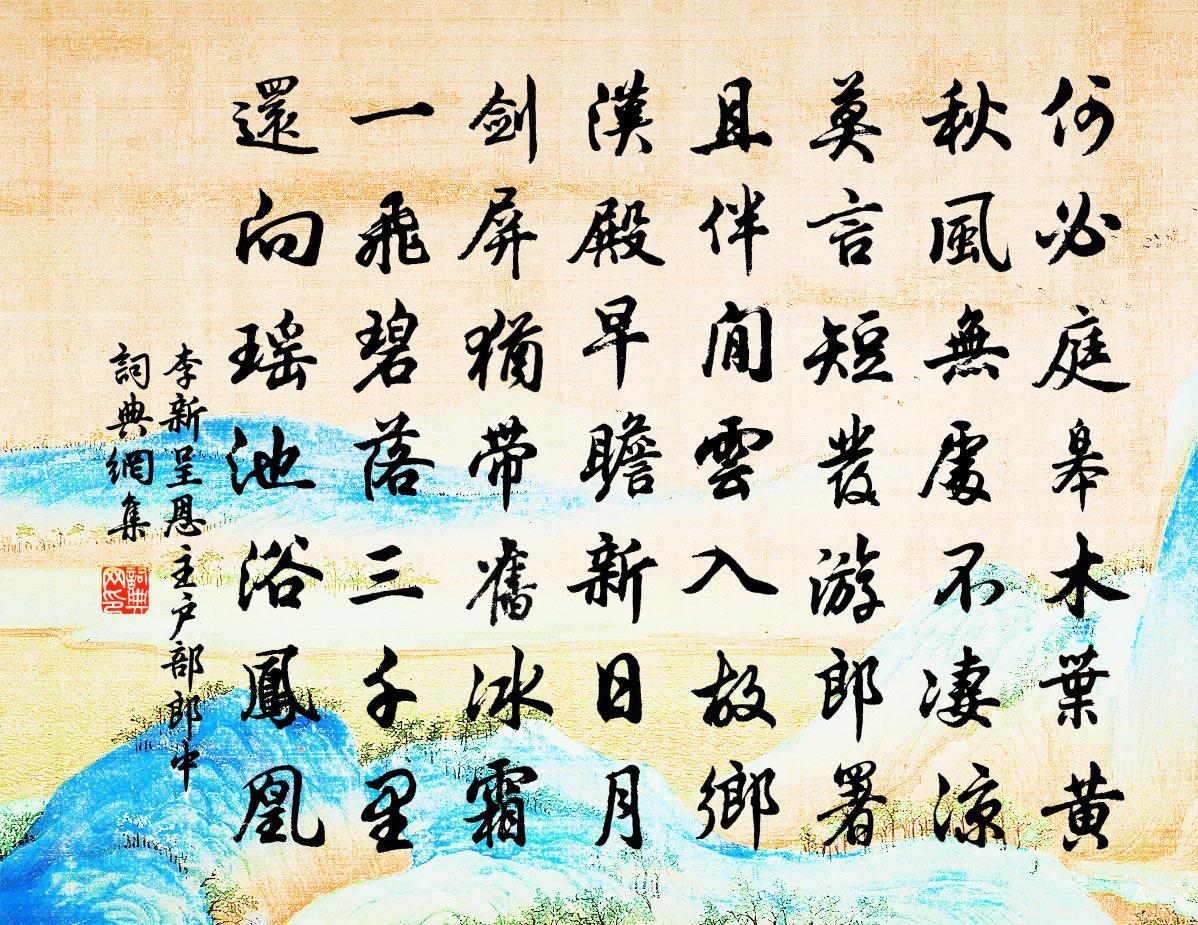 何必庭皋木葉黃
秋風無處不淒涼
莫言短發游郎署
且伴閒雲入故鄉
漢殿早瞻新日月
劍屏猶帶舊冰霜
一飛碧落三千里
還向瑤池浴鳳凰
李新呈恩主户部郎中
詞典網集
詞典
网印